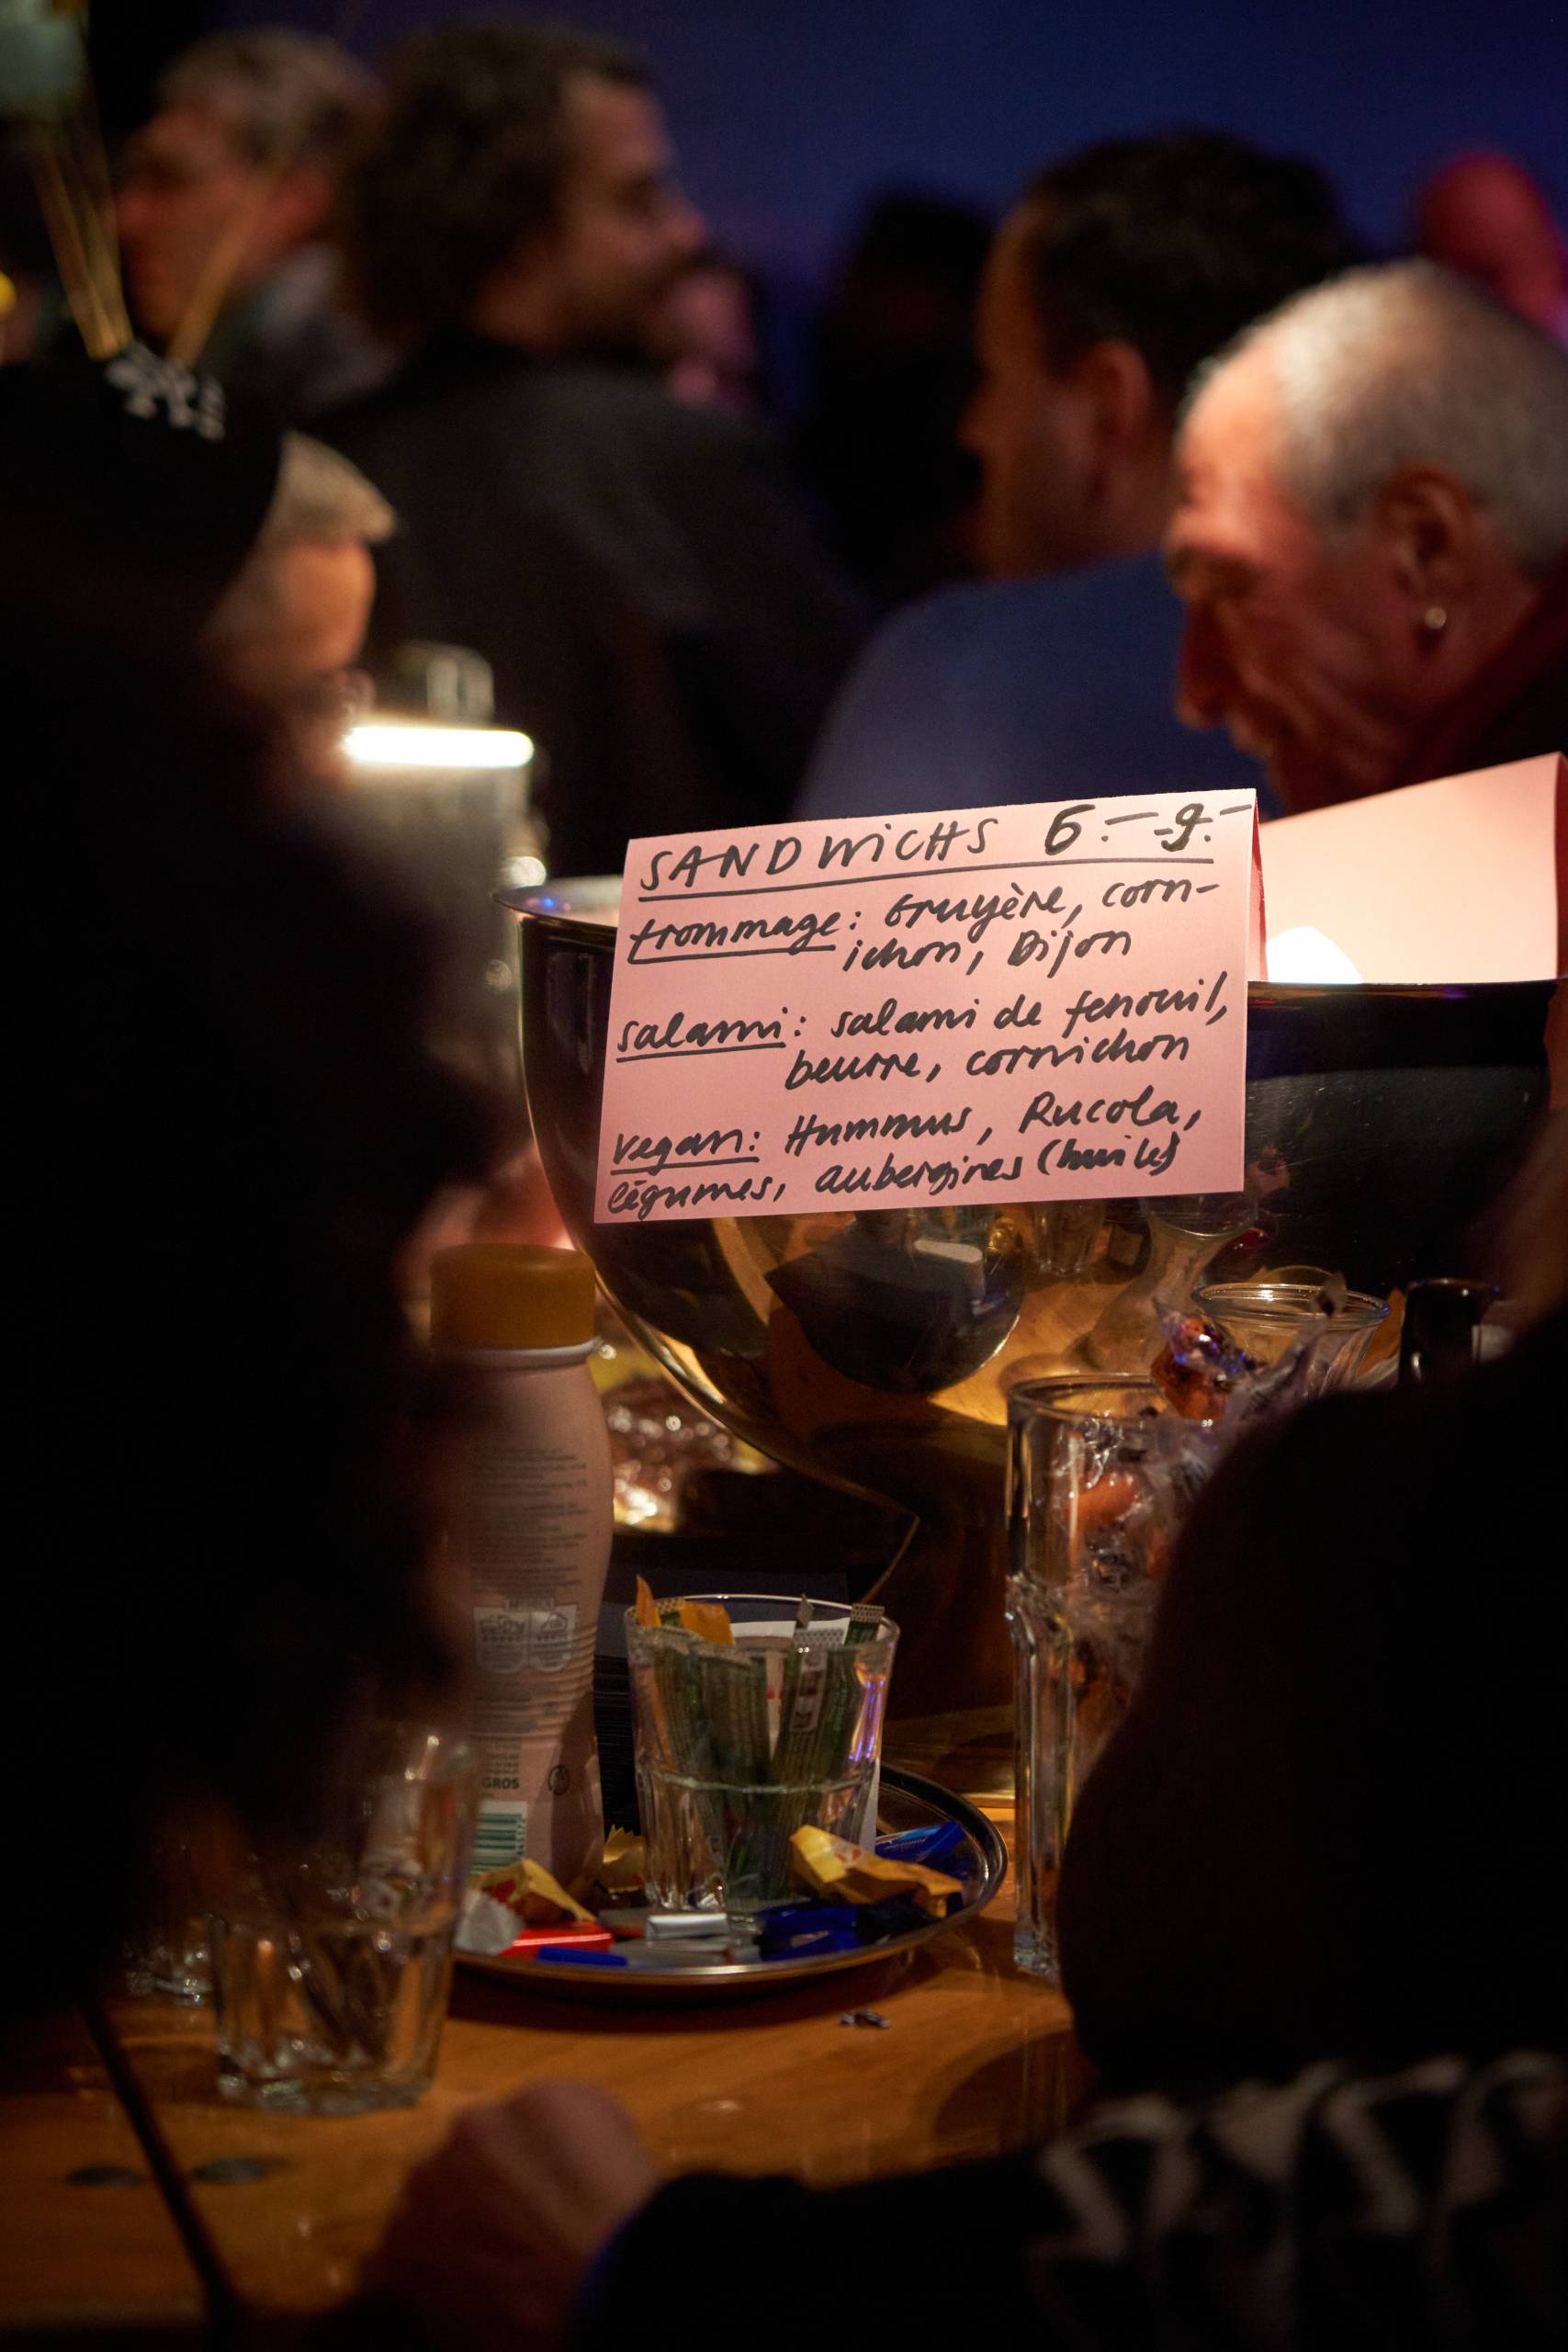 SANDWICHS 6.- -9.-
frommage: Gruyère, corn-
ichon, Dijon
salami: salami de fenouil,
beurre, cornichon
Vegan: Hummus, Rucola,
légumes, aubergines (huile)
GROS